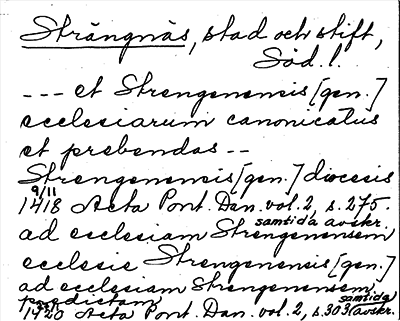 Strängnäs, stad och stift,
Söd. l.
--- et Strengenensis [gen.]
ecclesiarum canonicatus
et prebendas --
Strengenensis [gen.] diocesis
9/11
1418 Acta Pont. Dan. vol. 2, s. 275.
samtida avskr.
ad ecclesiam Strengenensem
ecclesie Strengenensis [gen.]
ad ecclesiam Strengenensem
predictam
samtida
1920 Acta Pont. Dan. vol. 2, s. 303 avskr.